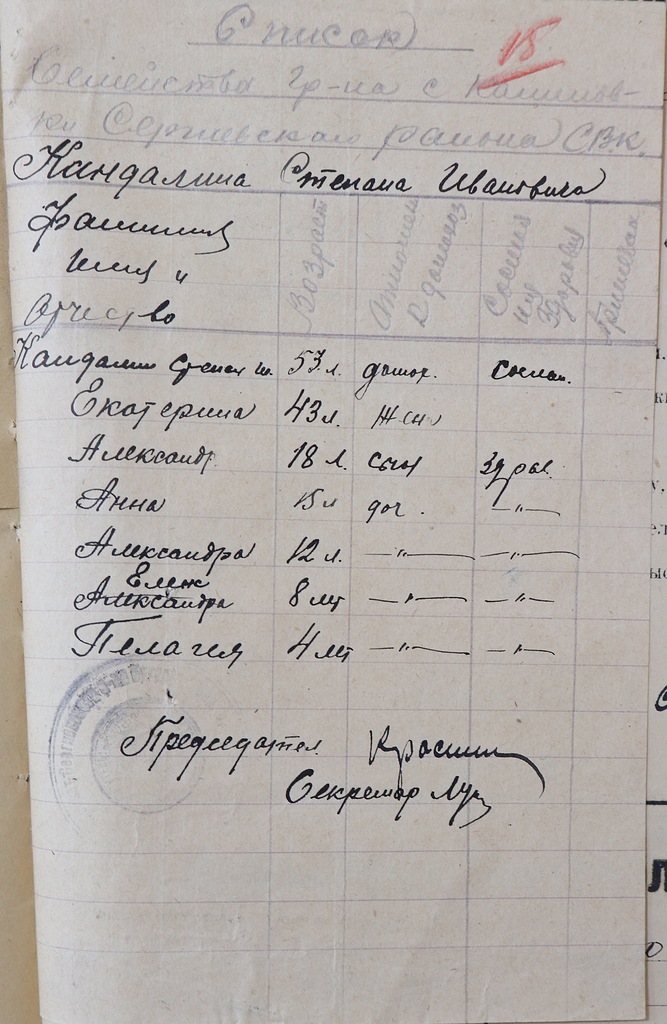 Список
15
Семейства гр-на с Кашпиров-
ки Сергиевского района СВК.
Кандалина Степана Ивановича
Фамилия
Имя и
Отчество
Возраст
Отношен
к домохоз
Состоян
ия
Здоровья
Кандалин Степан И. 53 л. домох.
Екатерина 43 л. жен
Александр 18 л. сын здоров.
Анна 15 л доч. -"-
Александра 12 л. -"- -"-
Елен
Александра 8 лет -"- -"-
Пелагея 4 лет -"- -"-
Председател
Секретар